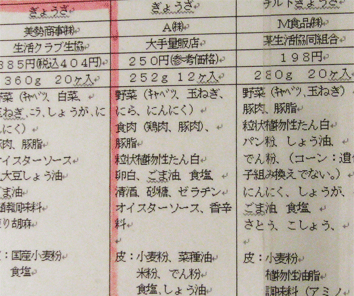 ぎょうざ
美勢商事㈱
生活クラブ生協
385円(税込404円)
360g 20ヶ入
野菜（ｷｬﾍﾞﾂ、白菜、
玉ねぎ、ニラ、しょうが、に
んにく）
肉、豚脂
オイスターソース
大豆しょう油
ごま油
ろり胡麻
皮：国産小麦粉
食塩
ぎょうざ
A㈱
大手量販店
250円(参考価格)
252g 12ヶ入
野菜（ｷｬﾍﾞﾂ、玉ねぎ、
にら、にんにく）
食肉（鶏肉、豚肉）、
豚脂
粒状植物性たん白
卵白、ごま油 食塩
清酒、砂糖、ゼラチン
オイスターソース、香辛
料
皮：小麦粉、菜種油
米粉、でん粉
食塩、しょう油
チルドぎょうざ
M食品㈱
某生活協同組合
198円
280g 20ヶ入
野菜（ｷｬﾍﾞﾂ、玉ねぎ）
豚肉、豚脂
粒状植物性たん白
パン粉、しょう油、
でん粉、（コーン：遺
子組み換えでない。）
にんにく、しょうが、
ごま油 食塩
さとう、こしょう、
皮：小麦粉
植物性油脂
調味料（アミノ